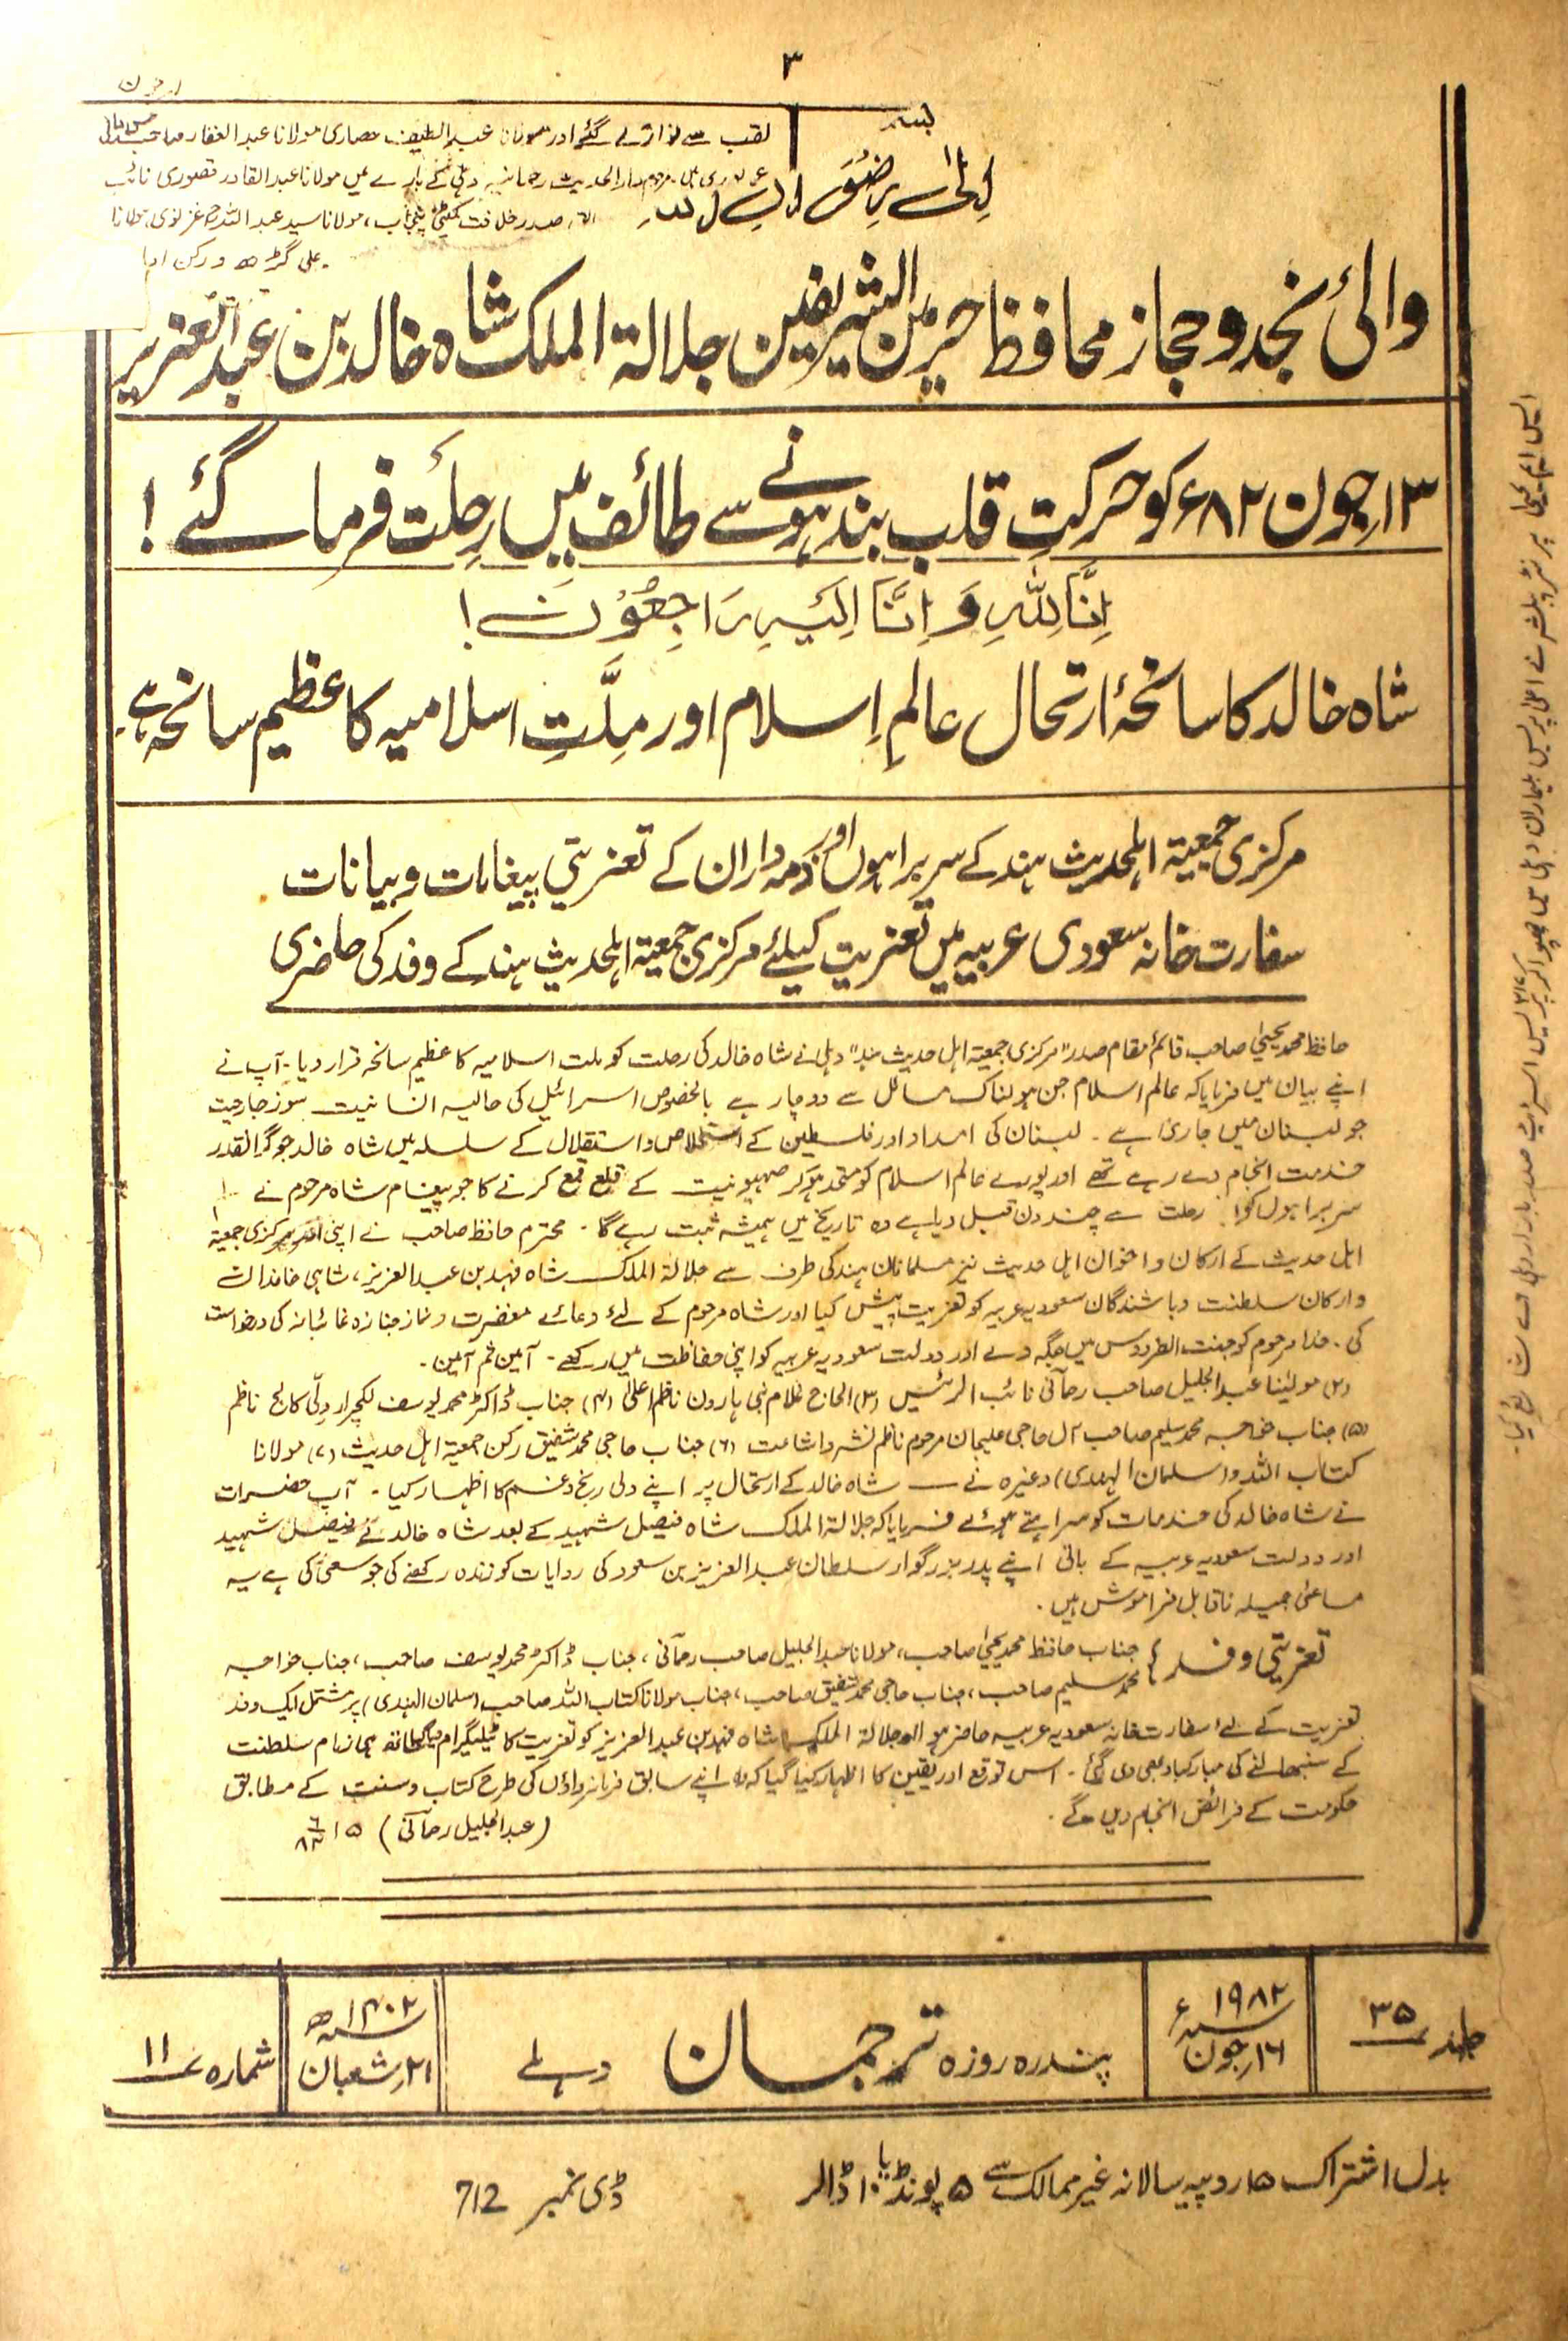 ۳
لقب سے نوازے گئے اور مولانا عبدالطیف حصاری مولانا عبدالغفار صاحب
مرحوم دارالحدیث رحمانیہ دہلی کے بارے میں مولانا عبدالقادر قصوری نائب
صدر خلافت کمیٹی پنجاب، مولانا سید عبداللہ غزنوی
علی گڑھ و رکن
والئ نجد و حجاز محافظ حرمین الشریفین جلالۃ الملک شاہ خالد بن عبدالعزیز
۱۳ جون ۸۲ء کو حرکتِ قلب بند ہونے سے طائف میں رِحلت فرما گئے!
اِنَّا لِلّٰهِ وَ اِنَّا اِلَیْہِ رَاجِعُوْنَ!
شاہ خالد کا سانحۂ ارتحال عالمِ اِسلام اور مِلَّتِ اسلامیہ کا عظیم سانحہ ہے۔
مرکزی جمعیۃ اہلحدیث ہند کے سربراہوں اور ذمہ داران کے تعزیتی پیغامات و بیانات
سفارت خانہ سعودی عربیہ میں تعزیت کیلئے مرکزی جمعیۃ اہلحدیث ہند کے وفد کی حاضری
حافظ محمد یحییٰ صاحب قائم مقام صدر "مرکزی جمعیۃ اہل حدیث ہند" دہلی نے شاہ خالد کی رحلت کو ملت اسلامیہ کا عظیم سانحہ قرار دیا۔ آپ نے
اپنے بیان میں فرمایا کہ عالم اسلام جن ہولناک مسائل سے دوچار ہے بالخصوص اسرائیل کی حالیہ انسانیت سوز جارحیت
جو لبنان میں جاری ہے۔ لبنان کی امداد اور فلسطین کے استخلاص و استقلال کے سلسلہ میں شاہ خالد جو گرانقدر
خدمت انجام دے رہے تھے اور پورے عالم اسلام کو متحد ہو کر صہیونیت کے قلع قمع کرنے کا جو پیغام شاہ مرحوم نے
سربراہوں کو رحلت سے چند دن قبل دیا ہے وہ تاریخ میں ہمیشہ ثبت رہے گا۔ محترم حافظ صاحب نے اپنی اور مرکزی جمعیۃ
اہل حدیث کے ارکان و اخوان اہل حدیث نیز مسلمانان ہند کی طرف سے جلالۃ الملک شاہ فہد بن عبدالعزیز، شاہی خاندان
و ارکان سلطنت و باشندگان سعودیہ عربیہ کو تعزیت پیش کیا اور شاہ مرحوم کے لئے دعائے مغفرت و نماز جنازہ غائبانہ کی درخواست
کی۔ خدا مرحوم کو جنت الفردوس میں جگہ دے اور دولت سعودیہ عربیہ کو اپنی حفاظت میں رکھے۔ آمین ثم آمین۔
(۲) مولینا عبدالجلیل صاحب رحمآنی نائب الرئیس (۳) الحاج غلام نبی ہارون ناظم اعلیٰ (۴) جناب ڈاکٹر محمد یوسف لکچرار دلّی کالج ناظم
(۵) جناب خواجہ محمد سلیم صاحب آل حاجی علیجان مرحوم ناظم نشر و اشاعت (۶) جناب حاجی محمد شفیق رکن جمعیۃ اہل حدیث (۷) مولانا
کتاب اللہ (سلمان الہندی) وغیرہ نے شاہ خالد کے ارتحال پر اپنے دلی رنج و غم کا اظہار کیا۔ آپ حضرات
نے شاہ خالد کی خدمات کو سراہتے ہوئے فرمایا کہ جلالۃ الملک شاہ فیصل شہید کے بعد شاہ خالد نے فیصل شہید
اور دولت سعودیہ عربیہ کے بانی اپنے پدر بزرگوار سلطان عبدالعزیز بن سعود کی روایات کو زندہ رکھنے کی جو سعی کی ہے یہ
مساعئ جمیلہ ناقابل فراموش ہیں۔
تعزیتی وفد: جناب حافظ محمد یحییٰ صاحب، مولانا عبدالجلیل صاحب رحمآنی، جناب ڈاکٹر محمد یوسف صاحب، جناب خواجہ
محمد سلیم صاحب، جناب حاجی محمد شفیق صاحب، جناب مولانا کتاب اللہ صاحب (سلمان الہندی) پر مشتمل ایک وفد
تعزیت کے لئے سفارت خانہ سعودیہ عربیہ حاضر ہوا اور جلالۃ الملک شاہ فہد بن عبدالعزیز کو تعزیت کا ٹیلیگرام دیا گیا ساتھ ہی زمام سلطنت
کے سنبھالنے کی مبارکباد بھی دی گئی۔ اس توقع اور یقین کا اظہار کیا گیا کہ وہ اپنے سابق فرمانرواؤں کی طرح کتاب و سنت کے مطابق
حکومت کے فرائض انجام دیں گے۔
(عبدالجلیل رحمآنی) ۱۵
جلد ۳۵
۱۹۸۲ سنہ ء
۱۶ جون
پندرہ روزہ ترجمان دہلی
۱۴۰۲ سنہ ھ
۲۱ شعبان
شمارہ ۱۱
بدل اشتراک ۱۵ روپیہ سالانہ غیر ممالک سے ۵ پونڈ یا ۱۰ ڈالر
ڈی نمبر 712